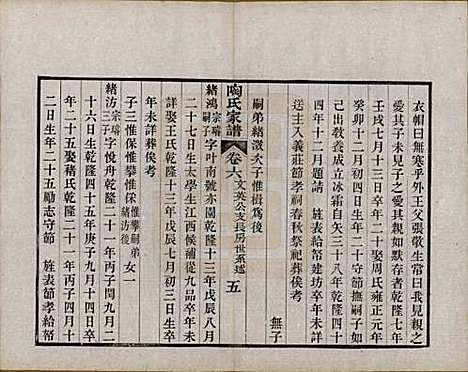 衣帽曰無寒乎外王父張敬生常曰我見親之
愛其子未見子之愛其親如默存者乾隆七年
壬戌七月十三日卒年二十娶周氏雍正元年
癸卯十二月起成立冰霜自矢三十八年乾隆四十
四年十二月題請 旌表給帑建坊卒年未詳
送主入義莊節孝祠春秋祭祀葬俟考 無子
嗣弟緒澂次子惟樹為後
陶氏家譜 卷六 文英公支長房世系述 五
緒鴻 宗瑜嗣子 字叶南號亦園乾隆十三年戊辰八月
二十七日生太學生江西候補從九品卒年未
詳娶王氏乾隆十三年戊辰七月初三日生卒
年未詳葬俟考
子三惟保惟攀惟保緒洧後 惟攀嗣弟 女一
緒洧 宗瑜三子 字悅舟乾隆二十一年丙子閏九月二
十六日生乾隆四十五年庚子九月十四日卒
年二十五娶褚氏乾隆二十一年丙子四月十
二日生年二十五勵志守節 旌表節孝給帑